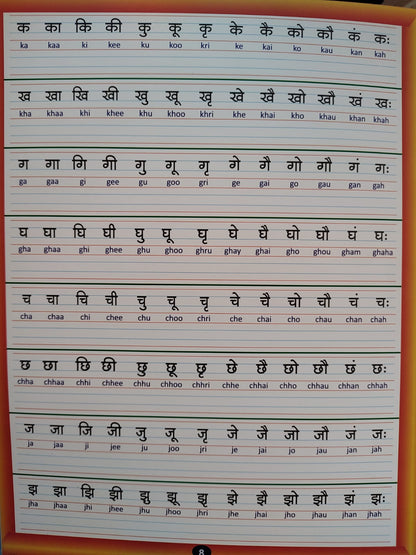 क का कि की कु कू कृ के कै को कौ कं कः
ka kaa ki kee ku koo kri ke kai ko kau kan kah
ख खा खि खी खु खू खृ खे खै खो खौ खं खः
kha khaa khi khee khu khoo khri khe khai kho khau khan khah
ग गा गि गी गु गू गृ गे गै गो गौ गं गः
ga gaa gi gee gu goo gri ge gai go gau gan gah
घ घा घि घी घु घू घृ घे घै घो घौ घं घः
gha ghaa ghi ghee ghu ghoo ghru ghay ghai gho ghou gham ghaha
च चा चि ची चु चू चृ चे चै चो चौ चं चः
cha chaa chi chee chu choo chri che chai cho chau chan chah
छ छा छि छी छु छू छृ छे छै छो छौ छं छः
chha chhaa chhi chhee chhu chhoo chhri chhe chhai chho chhau chhan chhah
ज जा जि जी जु जू जृ जे जै जो जौ जं जः
ja jaa ji jee ju joo jri je jai jo jau jan jah
झ झा झि झी झु झू झृ झे झै झो झौ झं झः
jha jhaa jhi jhee jhu jhoo jhri jhe jhai jho jhau jhan jhah
8